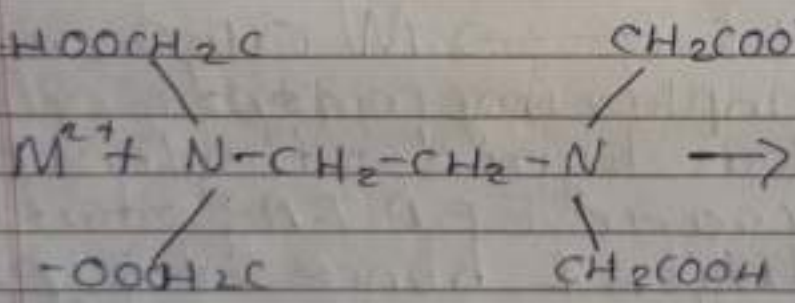 HOOCH₂C CH₂COO
M²⁺+ N-CH₂-CH₂-N →
-OOCH₂C CH₂COOH